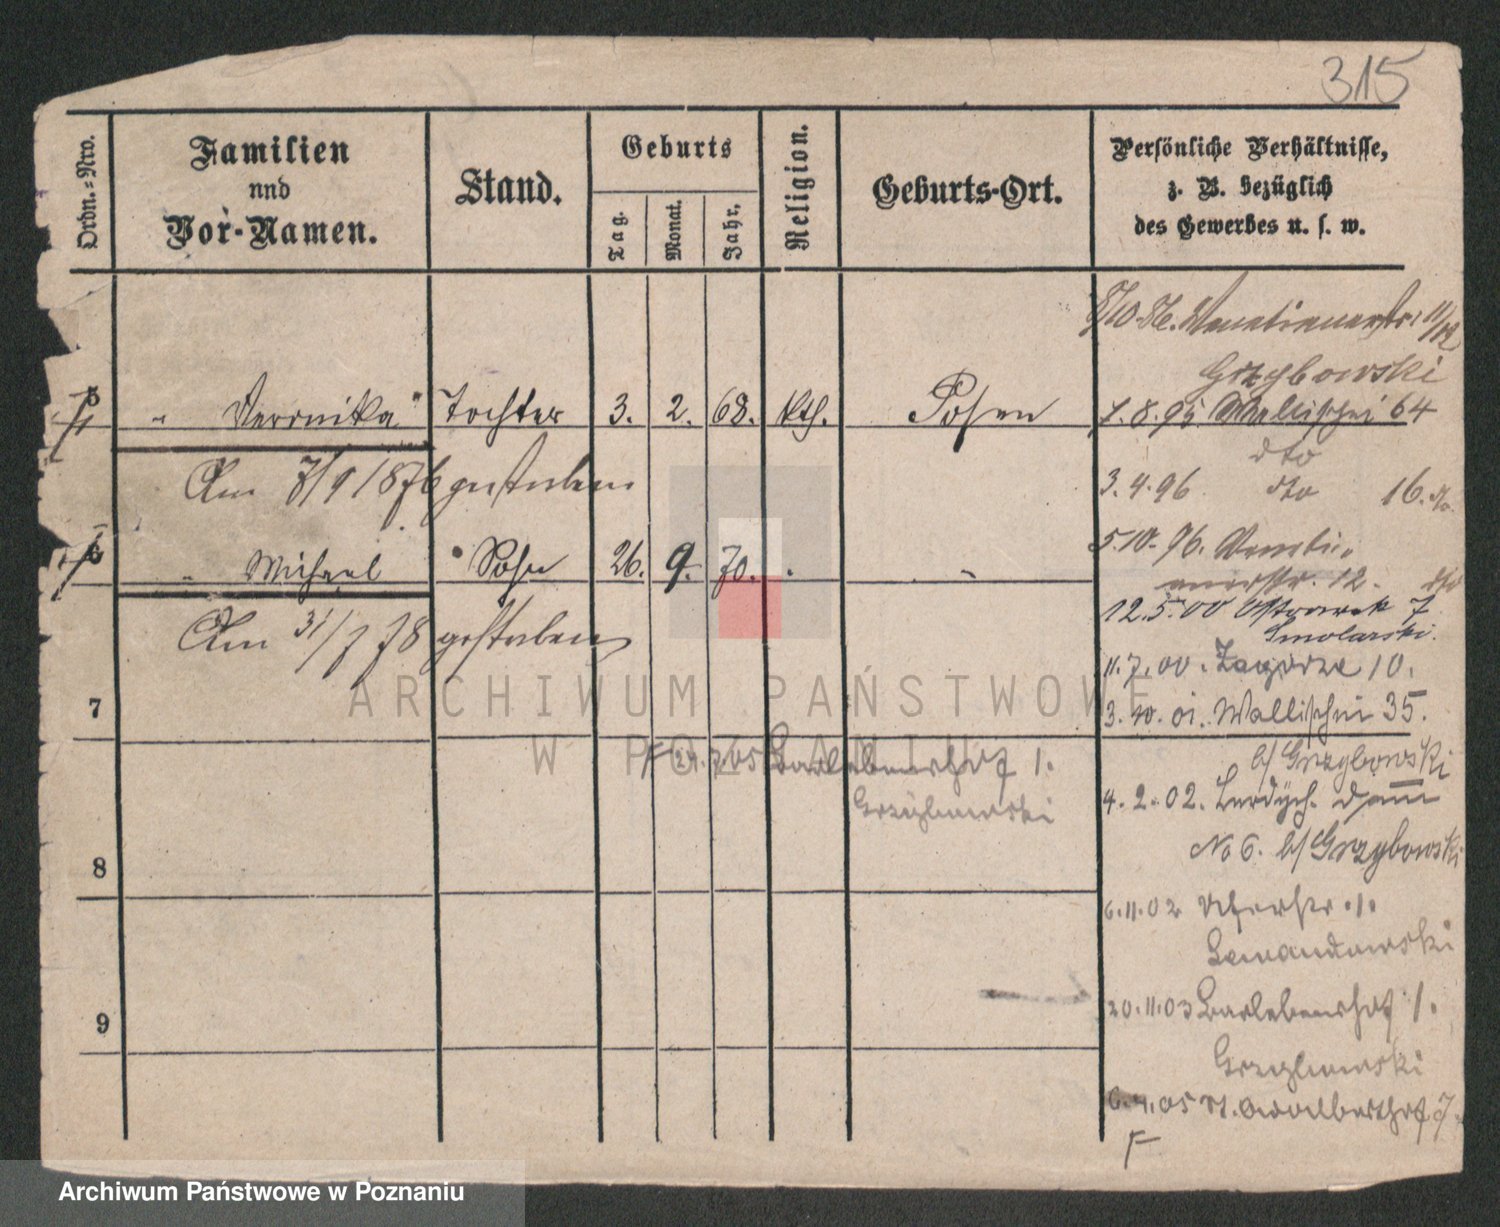 315
Ordn.-Nro.
Familien
und
Vor-Namen.
Stand.
Geburts
Tag.
Monat.
Jahr.
Religion.
Geburts-Ort.
Persönliche Verhältnisse,
z. B. bezüglich
des Gewerbes u. s. w.
8/10 86. Venetianerstr. 11/12
Grzybowski
5 " Veronika Tochter 3. 2. 68. kth. Posen
1.8.95. Wallischei 64
dto
Am 7/9 1876 gestorben
3.4.96 dto 16. dto
6 " Michael Sohn 26. 9. 70. " "
5.10.96. Veneti-
anerstr. 12.
12.5.00 Ostrowek 7
Smolarski.
Am 31/7 78 gestorben
11.7.00. Zagorze 10.
7
3.10.01. Wallischei 35.
b/ Grzybowski
Barlebenshof 1.
Grzybowski
4.2.02. Damm
No 6. b/ Grzybowski
8
6.11.02 Uferstr. 1.
Lewandowski
9
20.11.03 Barlebenshof 1.
Grzybowski
6.4.05 St. Adalbertstr. 7.
F
ARCHIWUM PAŃSTWOWE
W POZNANIU
Archiwum Państwowe w Poznaniu